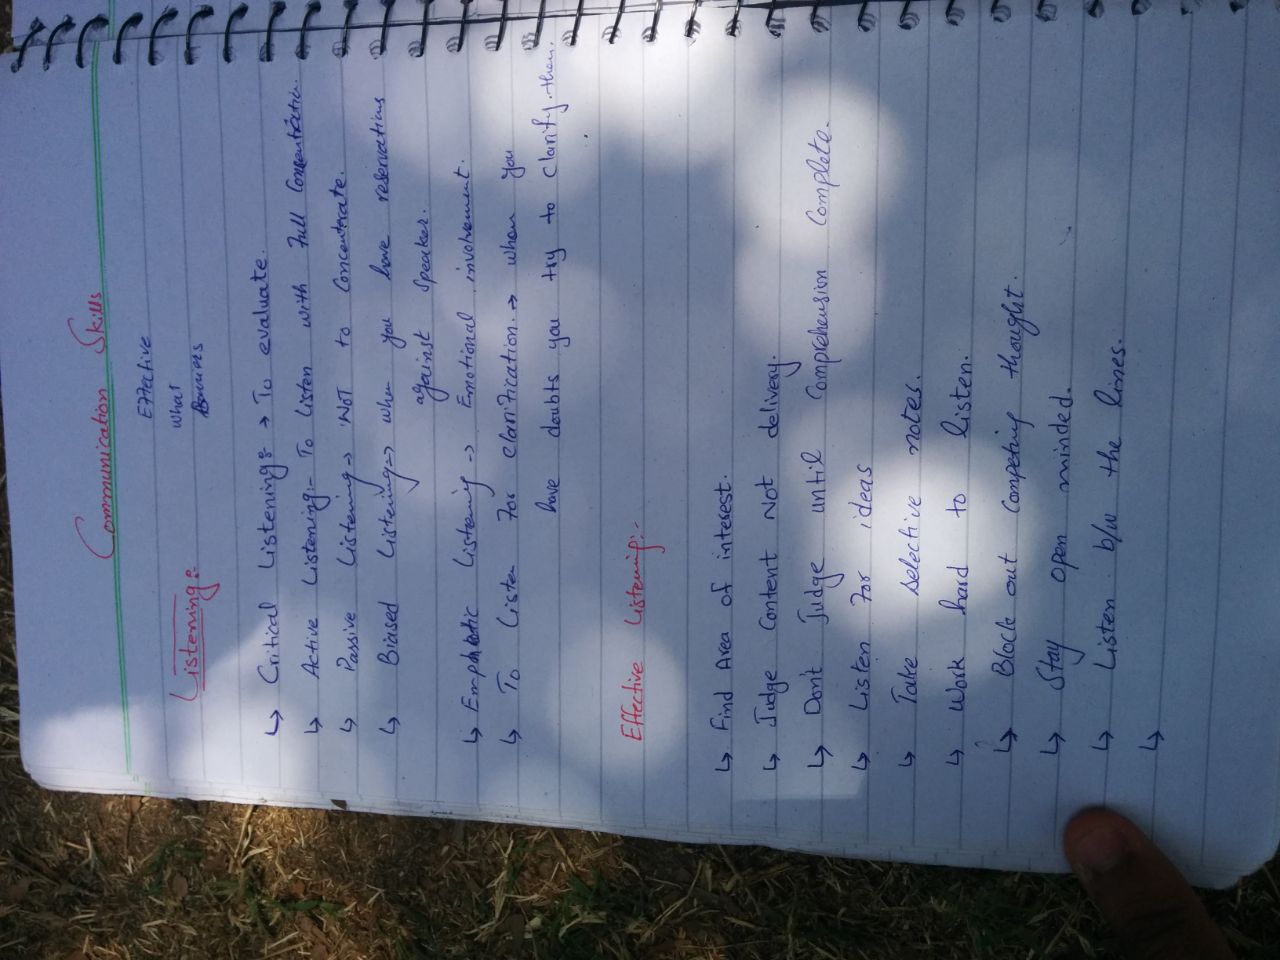 Communication Skills
Effective
what
Barriers
Listening:-
↳ Critical Listening:- → To evaluate.
↳ Active Listening:- To Listen with Full Concentration.
↳ Passive Listening → NOT to Concenterate.
↳ Biased Listening → when you have reservations
against Speaker.
↳ Emphatic Listening → Emotional involvement.
↳ To Listen For clarification. → when you
have doubts you try to clarify them.
Effective Listening:-
↳ Find Area of interest.
↳ Judge Content Not delivery.
↳ Don't Judge until Comprehension Complete.
↳ Listen For ideas
↳ Take selective notes.
↳ Work hard to listen.
↳ Block out Competing thought.
↳ Stay open minded.
↳ Listen b/w the lines.
↳